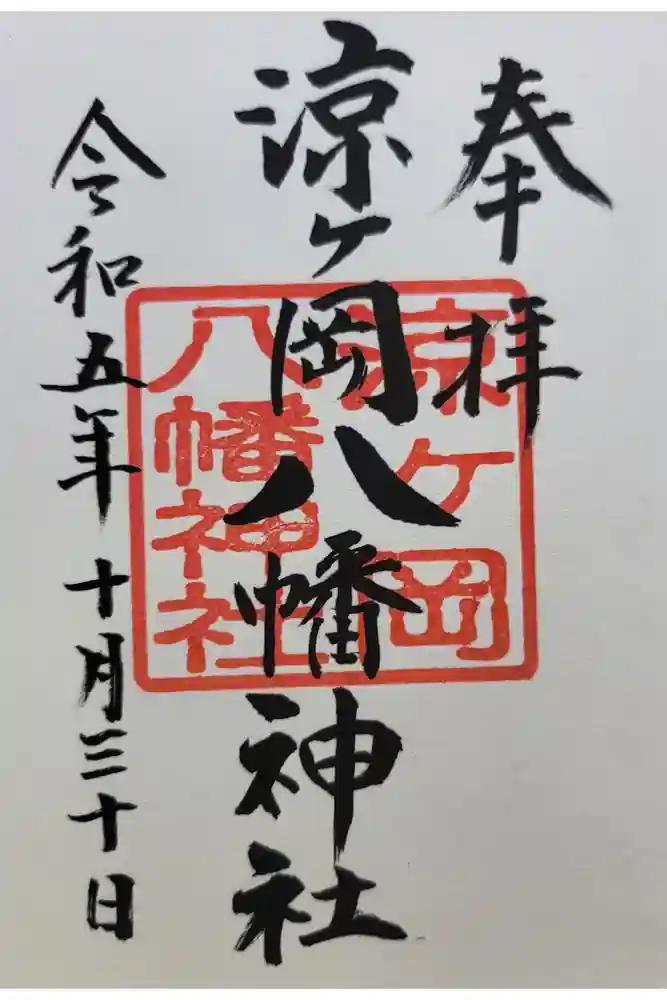 奉拝
涼ヶ岡八幡神社
令和五年十月三十日
涼ヶ岡
八幡神社